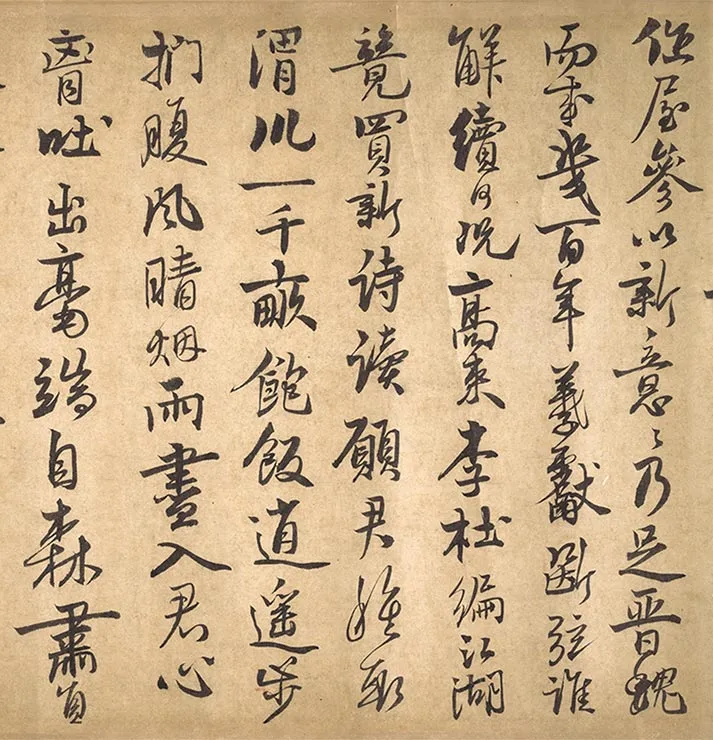 屋參以新意〻乃足晉魏
而來幾百年羲獻斷弦誰
解續高來李杜編江湖
競買新詩讀願君種取
渭川一千畝飽飯逍遥步
捫腹風晴烟雨盡入君心
胷吐出毫端自森肅